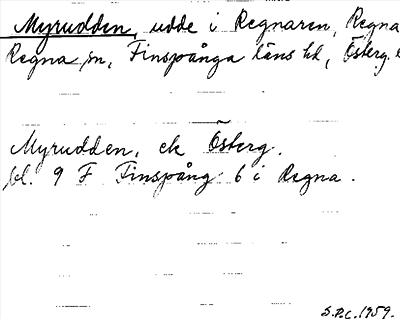 Myrudden, udde i Regnaren, Regna
Regna sn, Finspånga läns hd, Österg.
Myrudden, ek Österg.
bl. 9 F Finspång 6 i Regna.
S.P.C. 1959.